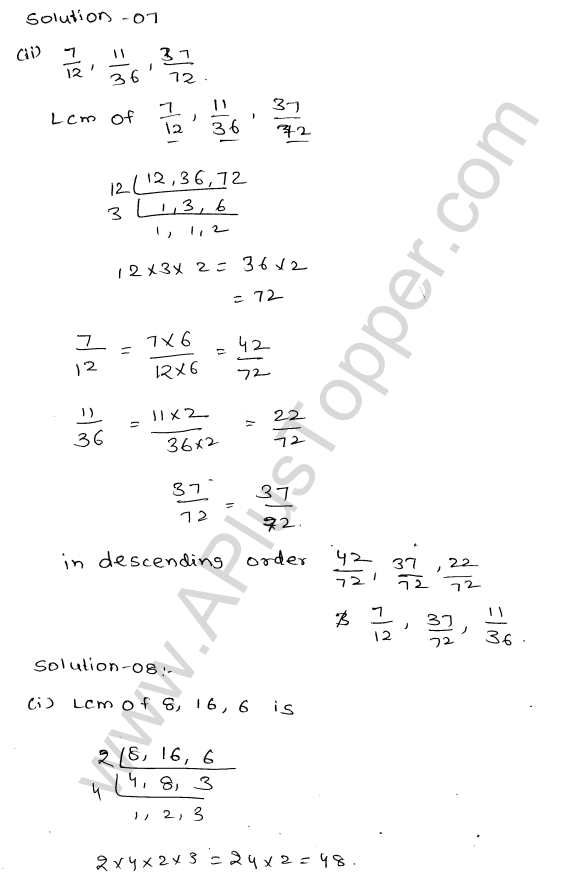 Solution -07
(ii) 7/12, 11/36, 37/72.
Lcm of 7/12, 11/36, 37/72
12 | 12, 36, 72
3 | 1, 3, 6
1, 1, 2
12×3×2 = 36×2
= 72
7/12 = 7×6/12×6 = 42/72
11/36 = 11×2/36×2 = 22/72
37/72 = 37/72.
in descending order 42/72, 37/72, 22/72
7/12, 37/72, 11/36.
Solution-08:-
(i) Lcm of 8, 16, 6 is
2 | 8, 16, 6
4 | 4, 8, 3
1, 2, 3
2×4×2×3 = 24×2 = 48.
www.APlusTopper.com